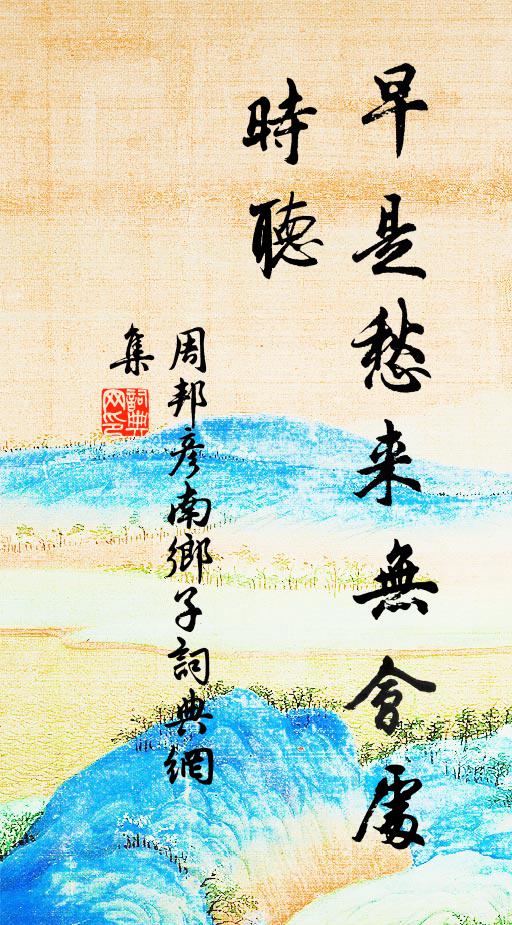 早是愁来無會處
時聽
周邦彦南鄉子詞典網
集
詞典
网印